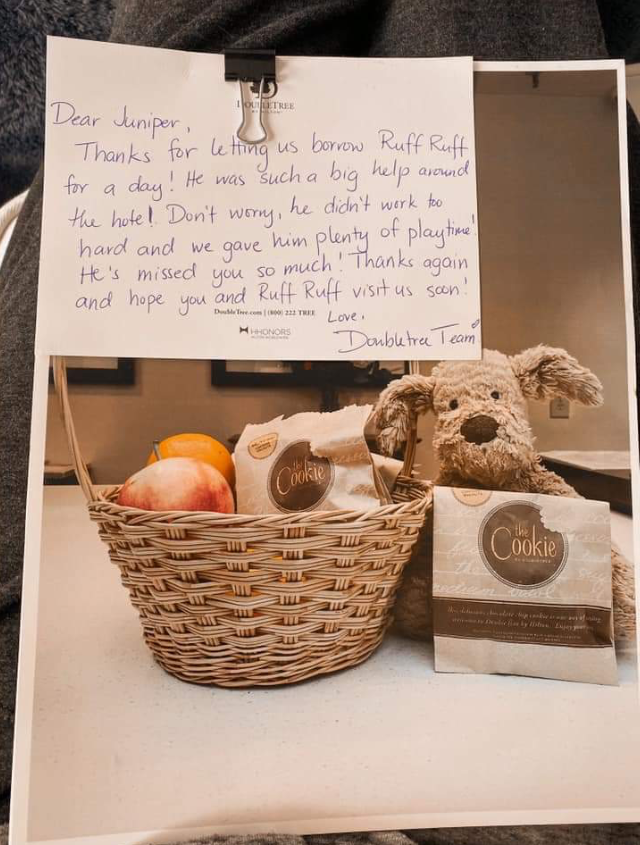 DOUBLETREE
Dear Juniper,
Thanks for letting us borrow Ruff Ruff
for a day! He was such a big help around
the hotel. Don't worry, he didn't work too
hard and we gave him plenty of playtime!
He's missed you so much! Thanks again
and hope you and Ruff Ruff visit us soon!
Love,
Doubletree Team
DoubleTree.com | (800) 222 TREE
HHONORS
the
Cookie
the
Cookie